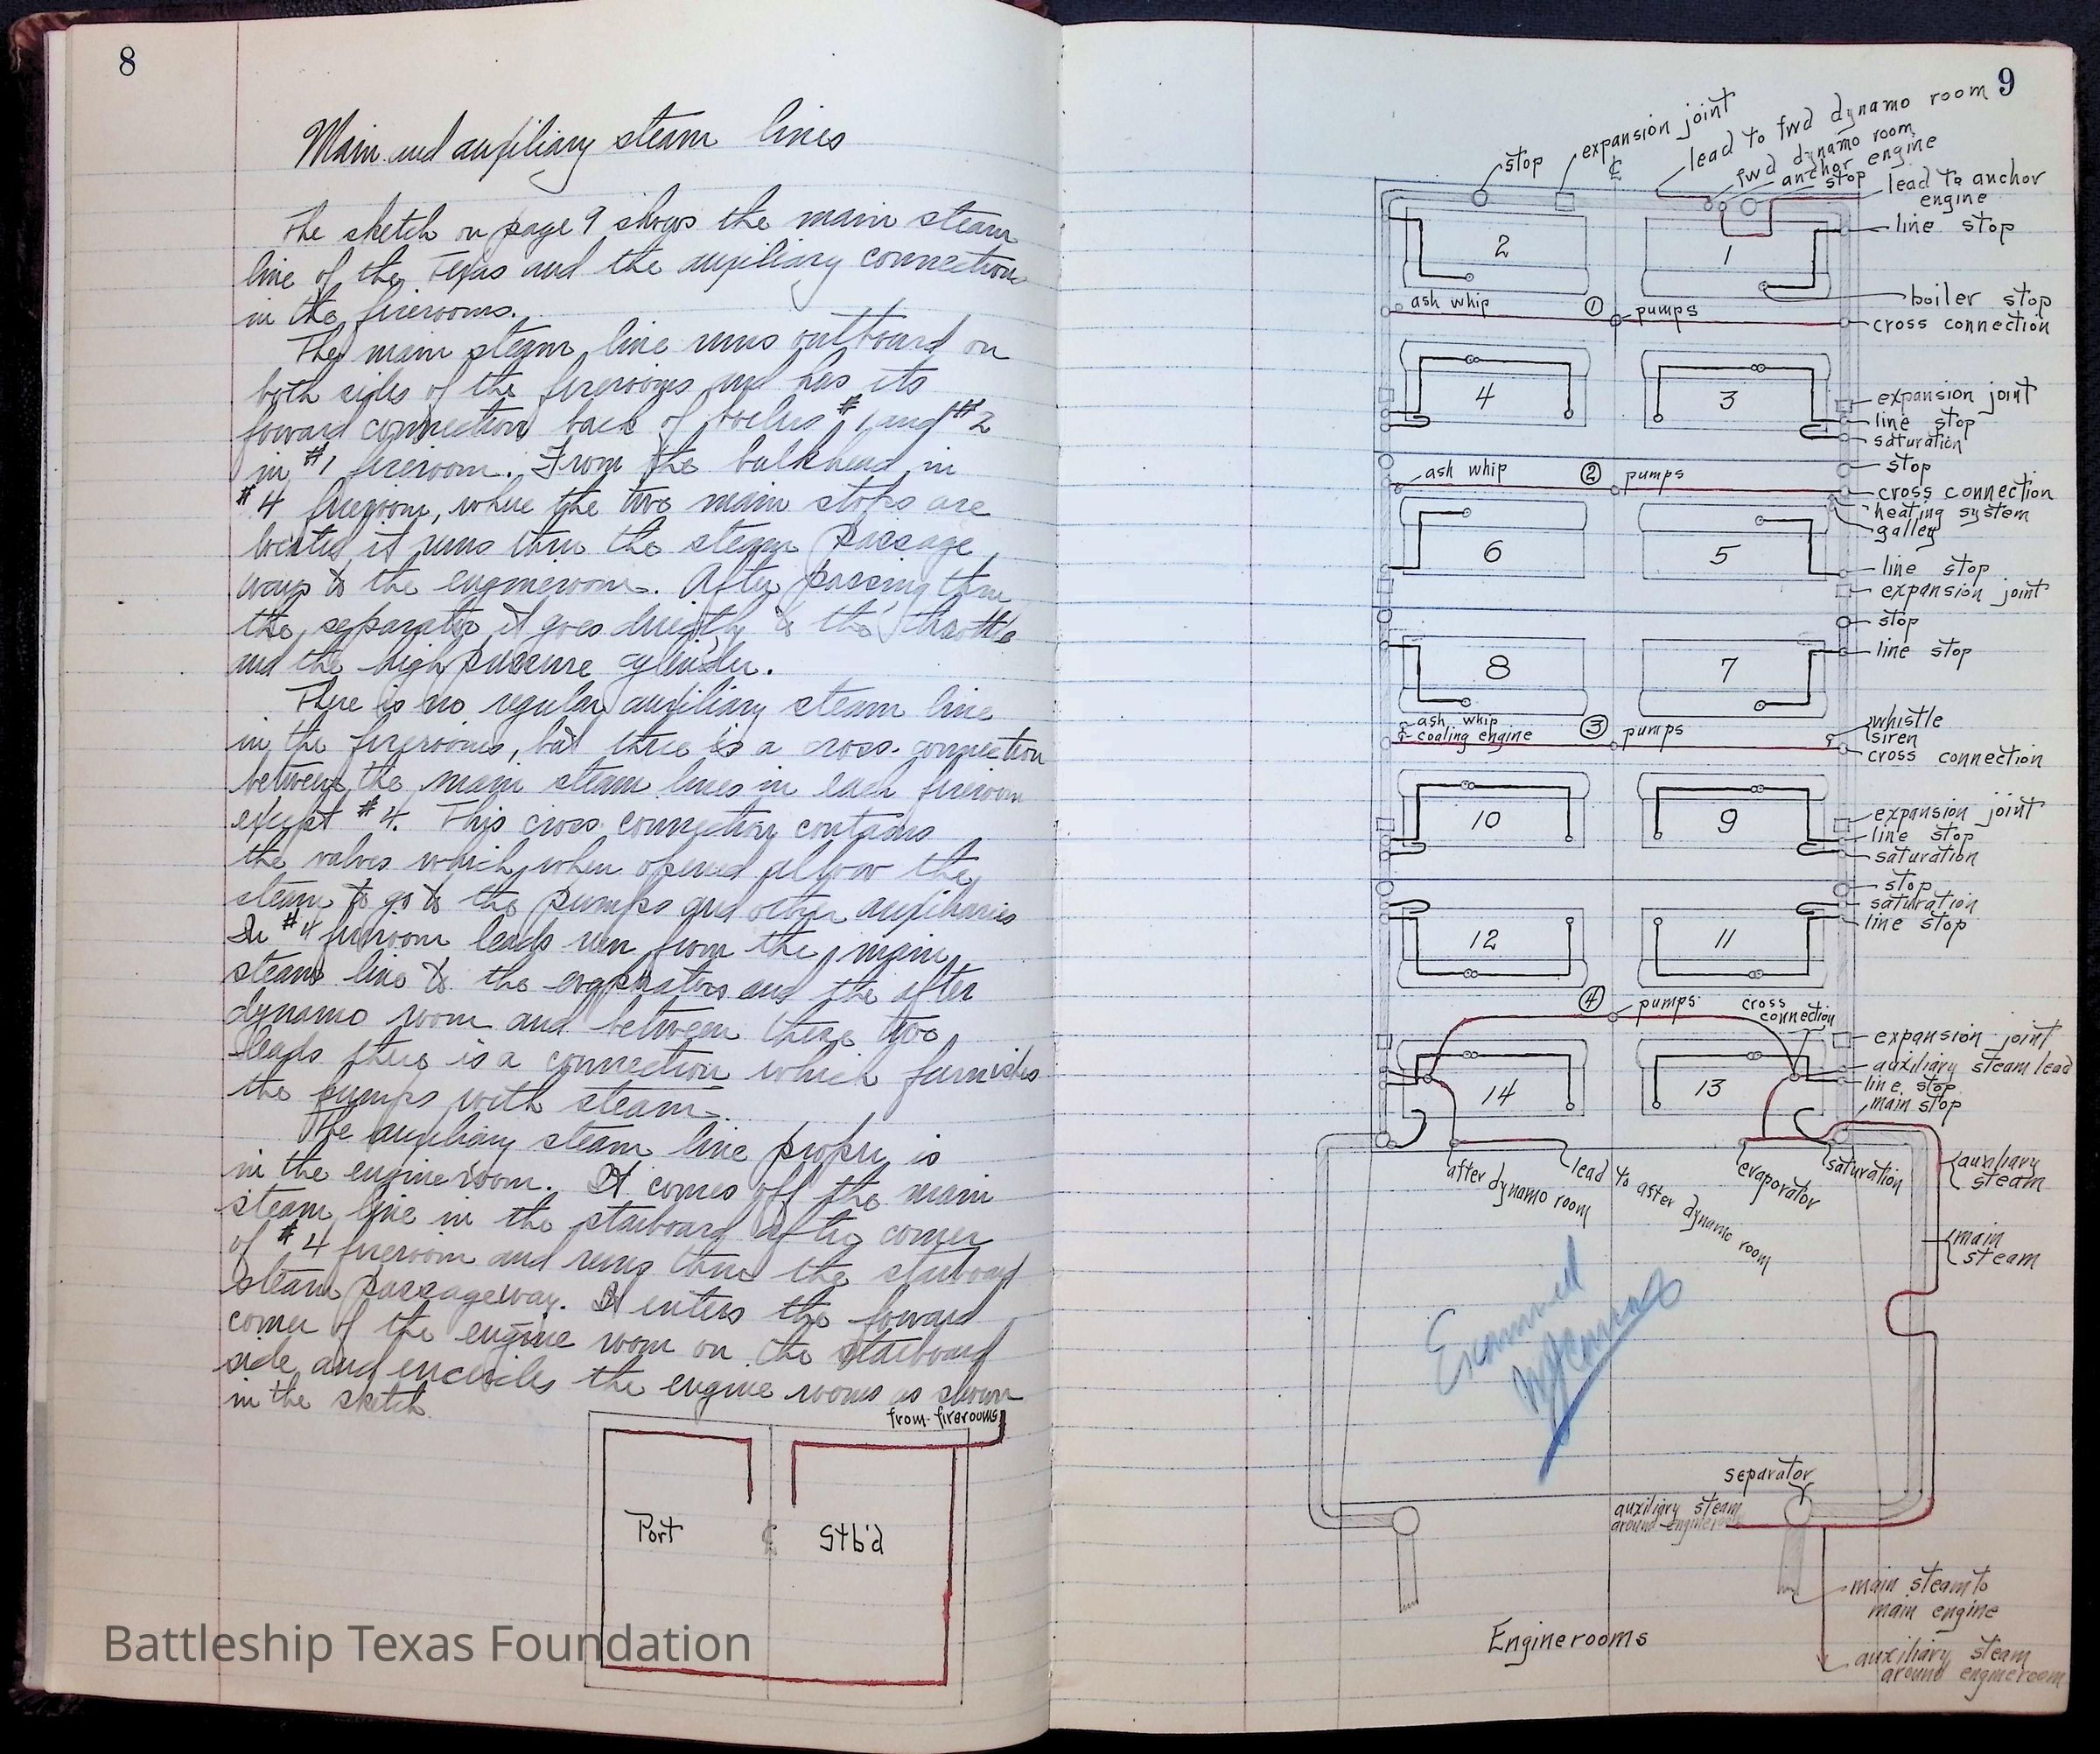 8
Main and auxiliary steam lines
The sketch on page 9 shows the main steam
line of the Texas and the auxiliary connection
in the firerooms.
The main steam line runs outboard on
both sides of the firerooms and has its
foward connection back of boilers #1 and #2
in #1 fireroom. From the bulkhead in
#4 fireroom, where the two main stops are
located it runs thru the steam passage
ways to the engineroom. After passing thru
the separator it goes directly to the throttle
and the high pressure cylinder.
There is no regular auxiliary steam line
in the firerooms, but there is a cross-connection
between the main steam lines in each fireroom
except #4. This cross connection contains
the valves which when opened allow the
steam to go to the pumps and other auxiliaries
In #4 fireroom leads run from the main
steam line to the evaporators and the after
dynamo room and between these two
leads there is a connection which furnishes
the pumps with steam.
The auxiliary steam line proper is
in the engine room. It comes off the main
steam line in the starboard after corner
of #4 fireroom and runs thru the starboard
steam passageway. It enters the foward
corner of the engine room on the starboard
side and encircles the engine rooms as shown
in the sketch
from firerooms
Port
℄
Stb'd
Battleship Texas Foundation
9
stop
expansion joint
℄
lead to fwd dynamo room
fwd dynamo room
anchor engine
stop
lead to anchor
engine
line stop
2
1
boiler stop
ash whip
1
pumps
cross connection
4
3
expansion joint
line stop
saturation
stop
ash whip
2
pumps
cross connection
heating system
galley
6
5
line stop
expansion joint
stop
8
7
line stop
ash whip
coaling engine
3
pumps
whistle
siren
cross connection
10
9
expansion joint
line stop
saturation
stop
saturation
line stop
12
11
4
pumps
cross
connection
expansion joint
auxiliary steam lead
line stop
main stop
14
13
after dynamo room
lead to after dynamo room
evaporator
saturation
auxiliary
steam
main
steam
Examined
separator
auxiliary steam
around engineroom
main steam to
main engine
Enginerooms
auxiliary steam
around engineroom